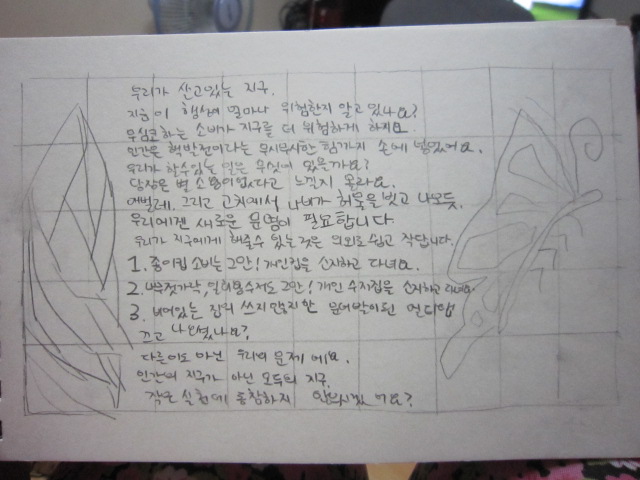 우리가 살고있는 지구.
지금 이 햄성이 얼마나 위험한지 알고 있나요?
무심코 하는 소비가 지구를 더 위험하게 하지요.
인간은 핵발전이라는 무시무시한 힘까지 손에 넣었어요.
우리가 할수있는 일은 무엇이 있을까요?
당장은 별 소용이 없다고 느낄지 몰라요.
애벌레. 그리고 고치에서 나비가 허물을 벗고 나오듯,
우리에겐 새로운 문명이 필요합니다.
우리가 지구에게 해줄수 있는것은 의외로 쉽고 작답니다.
1. 종이컵 소비는 그만! 개인컵을 소지하고 다녀요.
2. 나무젓가락, 일회용수저도 그만! 개인 수저집을 소지하고 다녀요.
3. 비어있는 쓰지 한
끄고 나오셨나요?
다른이도 아닌 우리의 문제예요.
인간의 지구가 아닌 모두의 지구.
작은 실천에 동참하지 않으시겠어요?